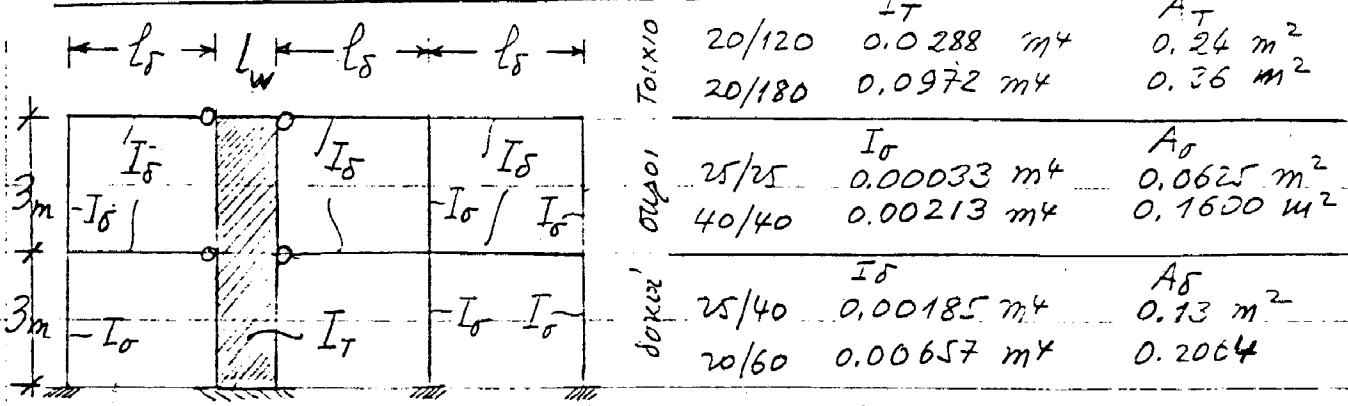 l_δ l_w l_δ l_δ
I_δ I_δ I_δ
3m I_σ I_σ I_σ
3m I_σ I_T I_σ I_σ
Τοιχιο
I_T A_T
20/120 0.0288 m4 0.24 m²
20/180 0.0972 m4 0.36 m²
στυλοι
I_σ A_σ
25/25 0.00033 m4 0.0625 m²
40/40 0.00213 m4 0.1600 m²
δοκοί
I_δ A_δ
25/40 0.00185 m4 0.13 m²
20/60 0.00657 m4 0.2064